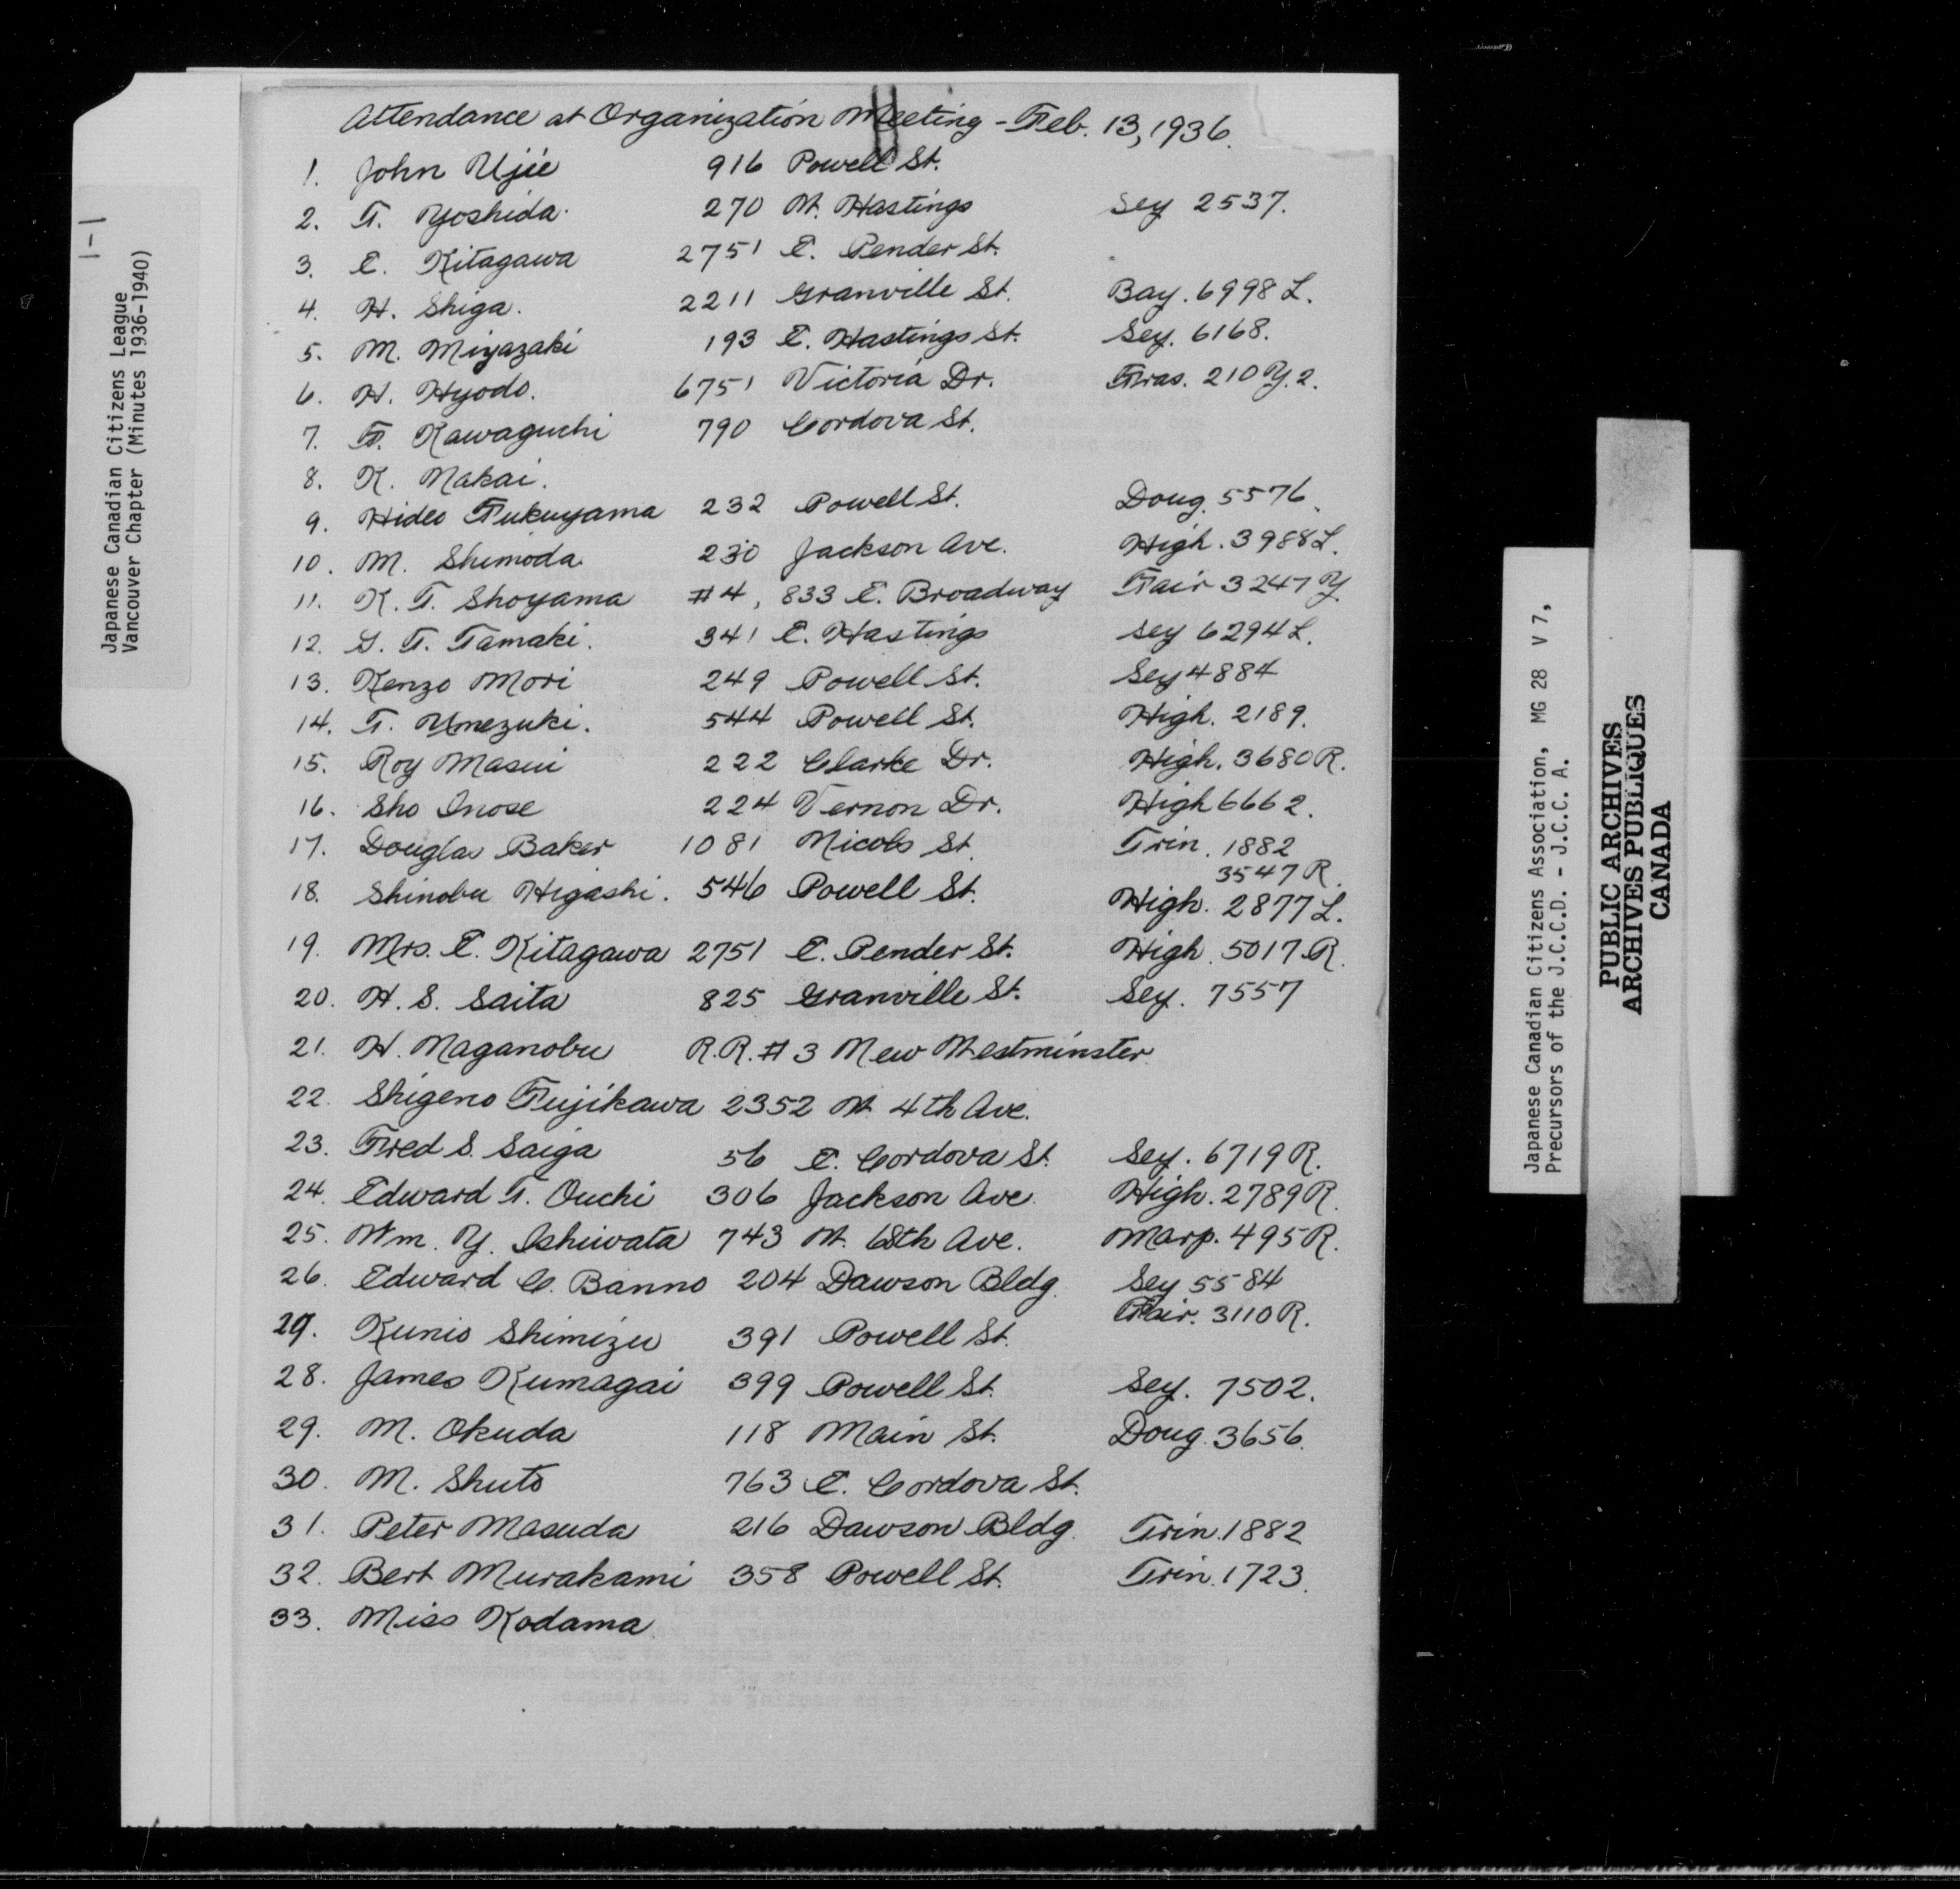 Attendance at Organization Meeting - Feb. 13, 1936.
1. John Ujie 916 Powell St.
2. T. Yoshida. 270 W. Hastings Sey 2537.
3. E. Kitagawa 2751 E. Pender St.
4. H. Shiga. 2211 Granville St. Bay. 6998 L.
5. M. Miyazaki 193 E. Hastings St. Sey. 6168.
6. H. Hyodo. 6751 Victoria Dr. Fras. 210 Y. 2.
7. F. Kawaguchi 790 Cordova St.
8. K. Nakai.
9. Hideo Fukuyama 232 Powell St. Doug. 5576.
10. M. Shimoda 230 Jackson Ave. High. 3988 L.
11. K. T. Shoyama #4, 833 E. Broadway Fair 3247 Y
12. G. T. Tamaki. 341 E. Hastings Sey 6294 L.
13. Kenzo Mori 249 Powell St. Sey 4884
14. T. Umezuki. 544 Powell St. High. 2189.
15. Roy Masui 222 Clarke Dr. High. 3680 R.
16. Sho Inose 224 Vernon Dr. High 6662.
17. Douglas Baker 1081 Nicols St. Trin. 1882
3547 R.
18. Shinobu Higashi. 546 Powell St. High. 2877 L.
19. Mrs. E. Kitagawa 2751 E. Pender St. High. 5017 R.
20. H. S. Saita 825 Granville St. Sey. 7557
21. H. Naganobu R.R. #3 New Westminster
22. Shigeno Fujikawa 2352 W. 4th Ave.
23. Fred S. Saiga 56 E. Cordova St. Sey. 6719 R.
24. Edward T. Ouchi 306 Jackson Ave. High. 2789 R.
25. Wm. Y. Ishiwata 743 W. 68th Ave. Marp. 495 R.
26. Edward C. Banno 204 Dawson Bldg. Sey 5584
Fair. 3110 R.
27. Kunio Shimizu 391 Powell St.
28. James Kumagai 399 Powell St. Sey. 7502.
29. M. Okuda 118 Main St. Doug. 3656.
30. M. Shuto 763 E. Cordova St.
31. Peter Masuda 216 Dawson Bldg. Trin. 1882
32. Bert Murakami 358 Powell St. Trin. 1723.
33. Miss Kodama
1-1
Japanese Canadian Citizens League
Vancouver Chapter (Minutes 1936-1940)
Japanese Canadian Citizens Association, MG 28 V 7,
Precursors of the J.C.C.D. - J.C.C. A.
PUBLIC ARCHIVES
ARCHIVES PUBLIQUES
CANADA